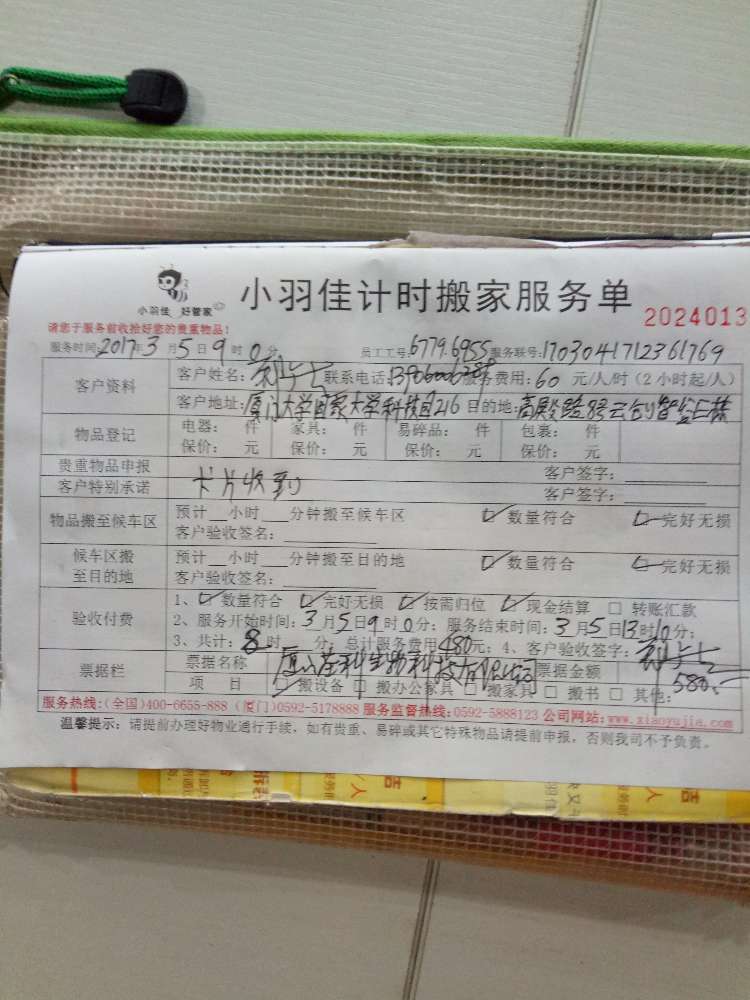 小羽佳 好管家
小羽佳计时搬家服务单
2024013
请您于服务前收拾好您的贵重物品!
服务时间:2017年3月5日9时0分 员工工号:6779.6955 服务联号:170304171236 1769
客户资料 客户姓名: 联系电话: 服务费用:60元/人/时(2小时起/人)
客户地址:厦门大学国家大学科技园216 目的地:
物品登记 电器: 件 家具: 件 易碎品: 件 包裹: 件
保价: 元 保价: 元 保价: 元 保价: 元
贵重物品申报 客户签字:
客户特别承诺 卡片收到 客户签字:
物品搬至候车区 预计 小时 分钟搬至候车区 ☑数量符合 ☑完好无损
客户验收签名:
候车区搬至目的地 预计 小时 分钟搬至目的地 ☑数量符合 ☑完好无损
客户验收签名:
验收付费 1、☑数量符合 ☑完好无损 ☑按需归位 ☑现金结算 □转账汇款
2、服务开始时间:3月5日9时0分;服务结束时间:3月5日13时10分;
3、共计:8时 分;总计服务费用480元;4、客户签名:
票据栏 票据名称 票据金额 580.
项 目 搬设备 □搬办公家具 □搬家具 □搬书 □其他:
服务热线:(全国)400-6655-888 (厦门)0592-5178888 服务监督热线:0592-5888123 公司网站:www.xiaoyujia.com
温馨提示:请提前办理好物业通行手续,如有贵重、易碎或其它特殊物品请提前申报,否则我司不予负责。